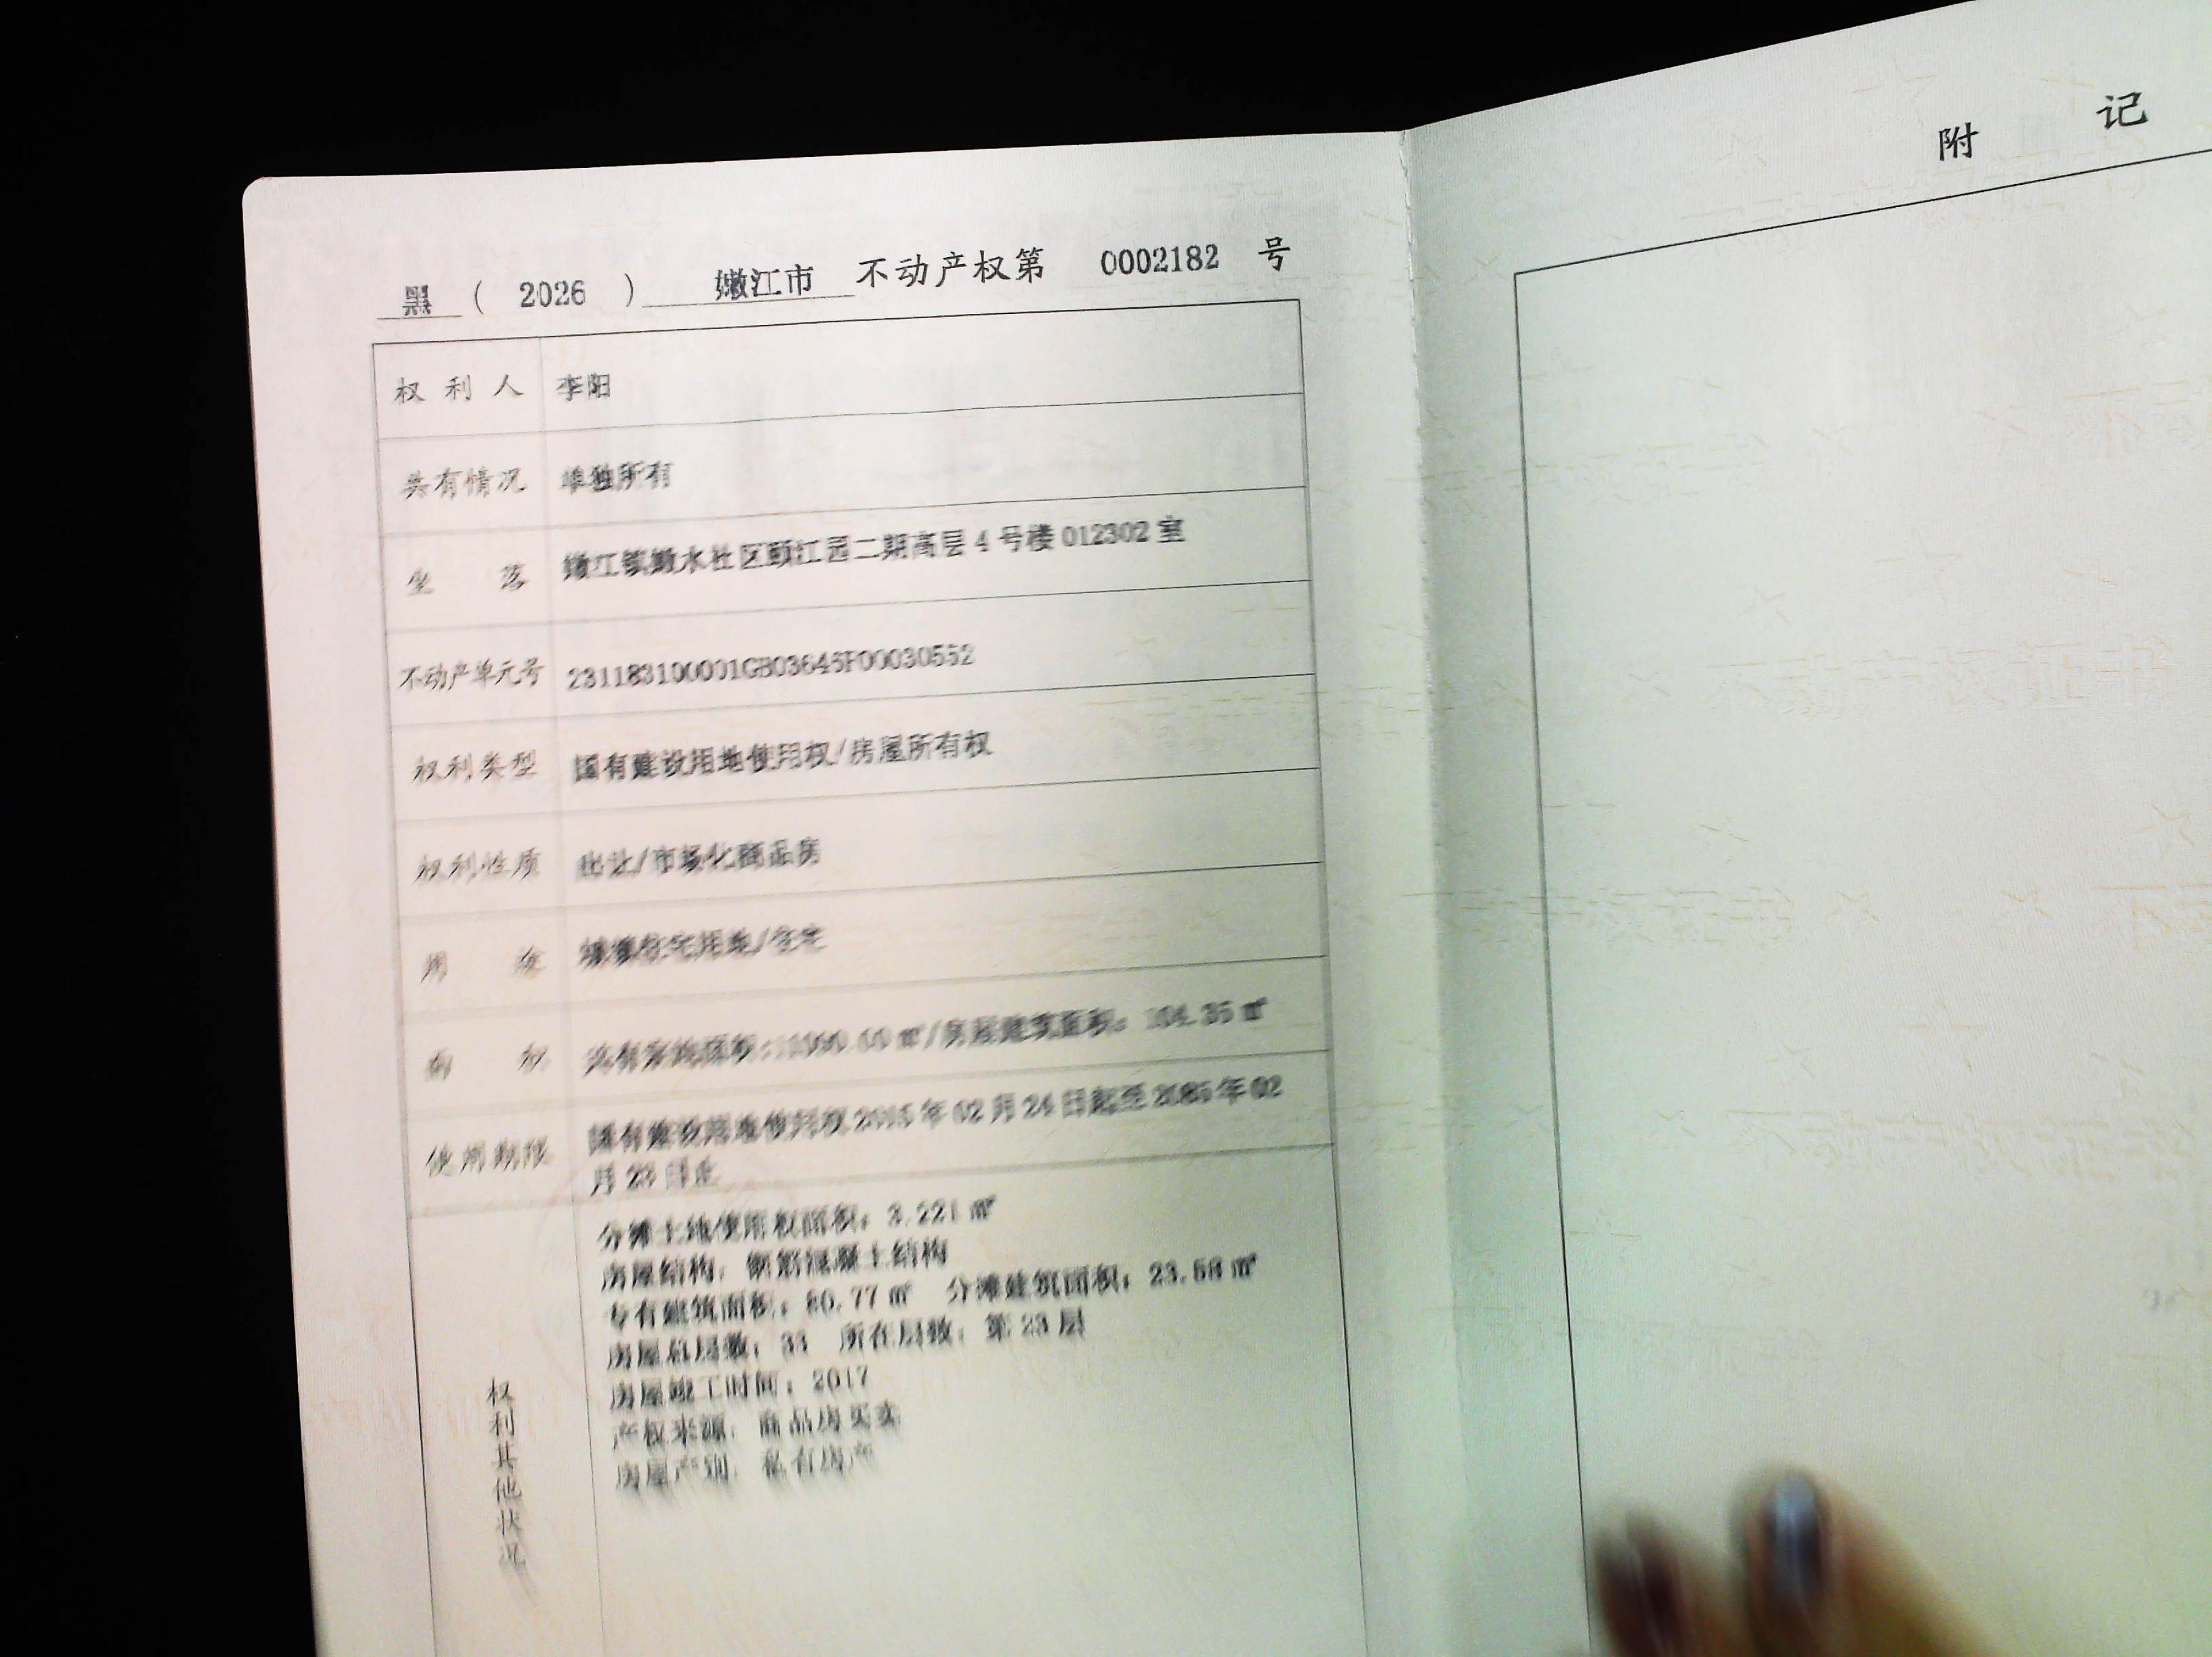 附 记
黑 ( 2026 ) 嫩江市 不动产权第 0002182 号
权利人 李阳
共有情况 单独所有
坐落 嫩江镇嫩水社区颐江园二期高层 4 号楼 012302 室
不动产单元号 231183100001GB03646F00030552
权利类型 国有建设用地使用权/房屋所有权
权利性质 出让/市场化商品房
用途 城镇住宅用地/住宅
面积 共有宗地面积: ㎡/房屋建筑面积: 104.35 ㎡
使用期限 国有建设用地使用权 2015 年 02 月 24 日起至 2085 年 02
月 23 日止
权利其他状况
分摊土地使用权面积: 3.221 ㎡
房屋结构: 钢筋混凝土结构
专有建筑面积: 80.77 ㎡ 分摊建筑面积: 23.58 ㎡
房屋总层数: 33 所在层数: 第 23 层
房屋竣工时间: 2017
产权来源: 商品房买卖
房屋产别: 私有房产